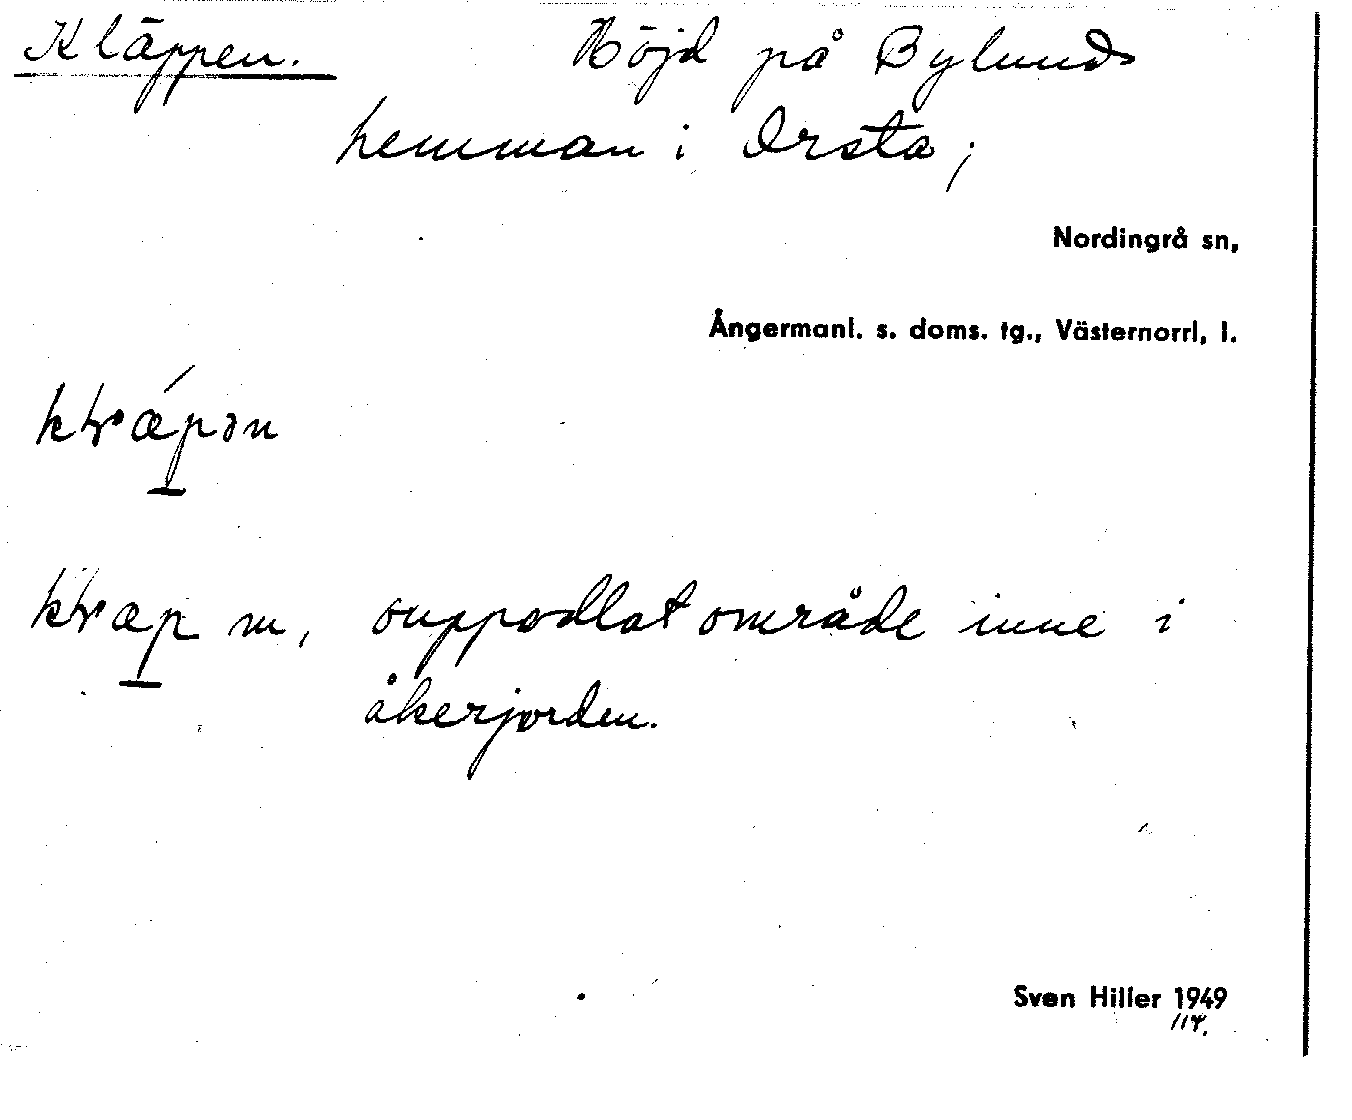 Kläppen. Höjd på Bylunds
hemman i Orsta;
Nordingrå sn,
Ångermanl. s. doms. tg., Västernorrl, l.
m, ouppodlat område inne i
åkerjorden.
Sven Hiller 1949